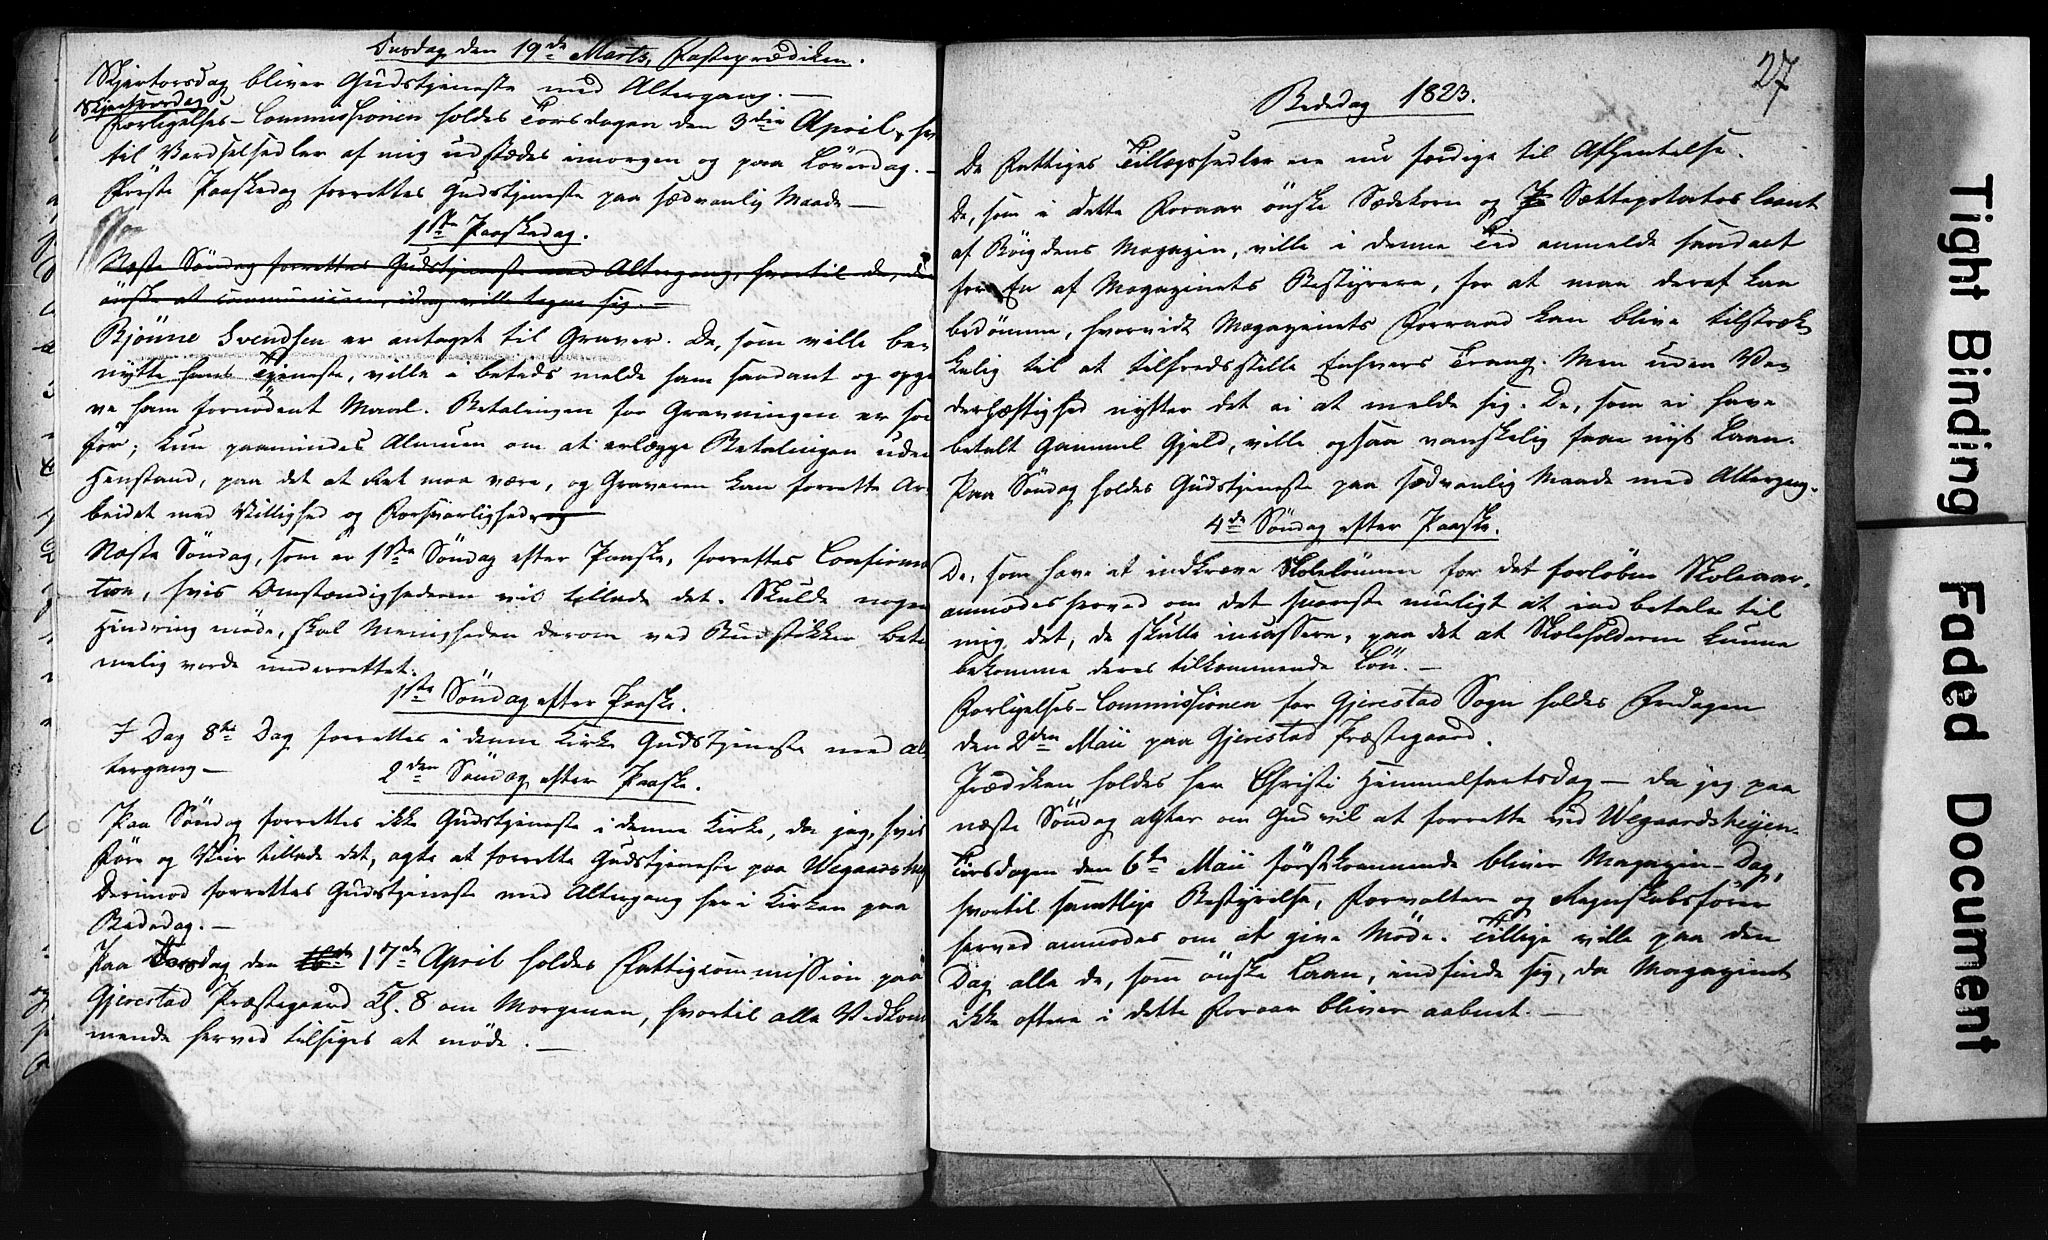 Onsdag den 19de Marts, Fasteprædiken.
Skjertorsdag bliver Gudstjeneste med Altergang. —
Skjertorsdag
Forligelses-Commissionen holdes Torsdagen den 3die April, hv
til Vardselsedler af mig udstædes imorgen og paa Löverdag. —
Förste Paaskedag forrettes Gudstjeneste paa sædvanlig Maade —
1ste Paaskedag.
Næste Söndag forrettes Gudstjeneste med Altergang, hvortil de, der
önske at communicere, idag ville tegne sig. —
Bjönne Svendsen er antaget til Graver. De, som ville be-
nytte hans Tjeneste, ville i betids melde ham saadant og opgi
ve ham fornödent Maal. Betalingen for Gravningen er som
för; kun paamindes Almuen om at erlægge Betalingen uden
Henstand, paa det at Ret maa være, og Graveren kan forrette Ar-
beidet med Villighed og Forsvarlighed, og
Næste Söndag, som er 1ste Söndag efter Paaske, forrettes Confirma
tion, hvis Omstændighederne vil tillade det. Skulde nogen
Hindring möde, skal Menigheden derom ved Budstikken beti
melig vorde underrettet.
1ste Söndag efter Paaske.
I Dag 8te Dag forrettes i denne Kirke Gudstjeneste med Al-
tergang —
2den Söndag efter Paaske.
Paa Söndag forrettes ikke Gudstjeneste i denne Kirke, da jeg, hvis
Före og Veir tillade det, agter at forrette Gudstjeneste paa Wegaardshej
Derimod forrettes Gudstjeneste med Altergang her i Kirken paa
Bededag. —
Paa Torsdag den 16de 17de April holdes Fattigcommission paa
Gjerestad Præstegaard Kl. 8 om Morgenen, hvortil alle Vedkom
mende herved tilsiges at möde. —
27
Bededag 1823.
De Fattiges Tillægssedler ere nu færdige til Afhentelse.
De, som i dette Foraar önske Sædekorn og Sættepotatos laant
af Böigdens Magazin, ville i denne Tid anmelde saadant
for En af Magazinets Bestyrere, for at man deraf kan
bedömme, hvorvidt Magazinets Forraad kan blive tilstræk-
kelig til at tilfredsstille Enhvers Trang. Men uden Ve-
derhæftighed nytter det ei at melde sig. De, som ei have
betalt Gammel Gjeld, ville ogsaa vanskelig faae nyt Laan.
Paa Söndag holdes Gudstjeneste paa sædvanlig Maade med Altergang.
4de Söndag efter Paaske.
De, som have at indkræve Skolelönnen for det forløbne Skoleaar,
anmodes herved om det snareste muligt at indbetale til
mig det, de skulle incassere, paa det at Skoleholderne kunne
bekomme deres tilkommende Lön. —
Forligelses-Commissionen for Gjerestad Sogn holdes Fredagen
den 2den Maii paa Gjerestad Præstegaard.
Prædiken holdes her Christi Himmelfartsdag — da jeg paa
næste Söndag agter om Gud vil at forrette ved Wegaardsheijen.
Tirsdagen den 6te Maii förstkommende bliver Magazin-Dag,
hvortil samtlige Bestyrelse, Forvaltere og Regnskabsförer
herved anmodes om at give Möde. Tillige ville paa den
Dag alle de, som önske Laan, indfinde sig, da Magazinet
ikke oftere i dette Foraar bliver aabnet. —
Tight Binding
Faded Document